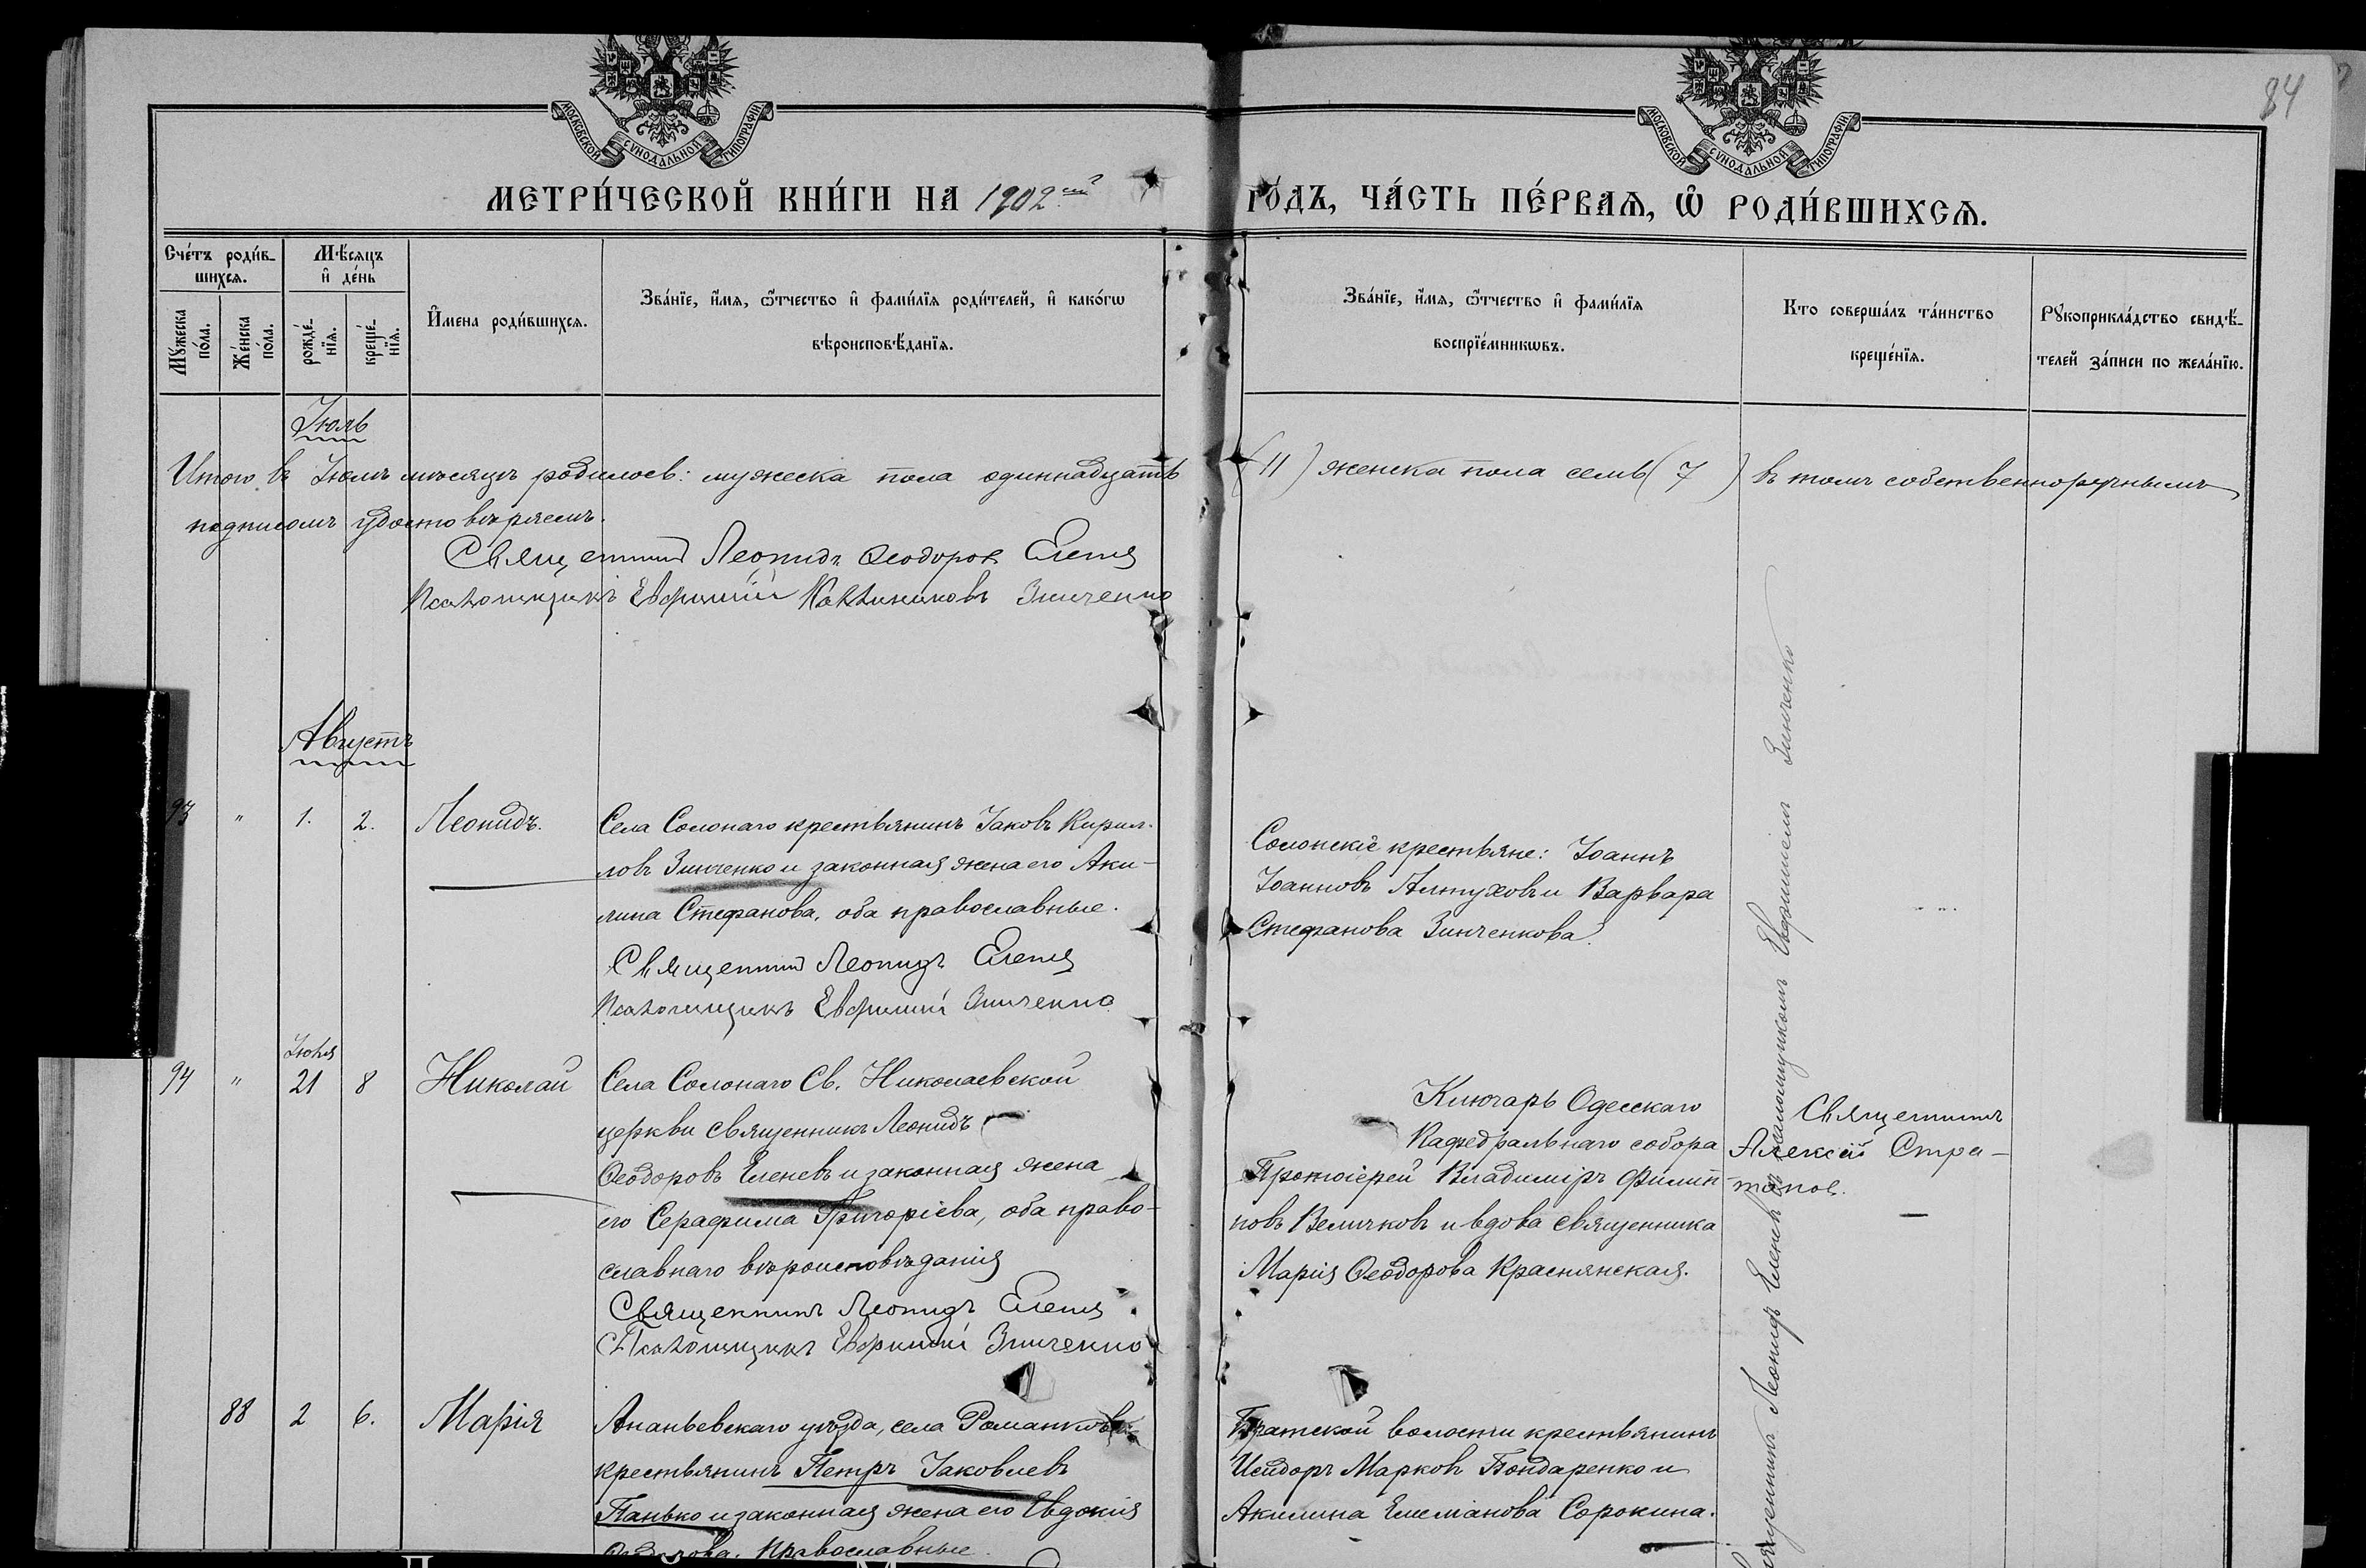 84
МОСКОВСКОЙ СѴНОДАЛЬНОЙ ТИПОГРАФІИ
МОСКОВСКОЙ СѴНОДАЛЬНОЙ ТИПОГРАФІИ
МЕТРИ́ЧЕСКОЙ КНИ́ГИ НА 1902 ГО́ДЪ, ЧА́СТЬ ПЕ́РВАѦ, Ѡ҆ РОДИ́ВШИХСѦ.
Сче́тъ роди́в-
шихсѧ.
Мꙋ́жеска
по́ла.
Же́нска
по́ла.
Мѣ́сѧцъ
и҆ де́нь
рожде́-
нїѧ.
креще́-
нїѧ.
И҆мена роди́вшихсѧ.
Зва́нїе, и҆́мѧ, ѻ҆́тчество и҆ фами́лїѧ роди́телей, и҆ како́гѡ
вѣроисповѣ́данїѧ.
Зва́нїе, и҆́мѧ, ѻ҆́тчество и҆ фами́лїѧ
воспрїе́мникѡвъ.
Кто соверша́лъ та́инство
креще́нїѧ.
Рꙋкоприкла́дство свидѣ́-
телей за́писи по жела́нїю.
Іюль
Итого въ Іюлѣ мѣсяцѣ родилось: мужеска пола одиннадцать (11) женска пола семь (7) въ томъ собственноручнымъ
подписомъ удостовѣряемъ.
Священникъ Леонидъ Ѳеодоровъ Еленевъ
Псаломщикъ Евфимій Каллиниковъ Зинченко
Августъ
93 " 1. 2. Леонидъ.
Села Солонаго крестьянинъ Іаковъ Кирил-
ловъ Зинченко и законная жена его Аки-
лина Стефанова, оба православные.
Священникъ Леонидъ Еленевъ
Псаломщикъ Евфимій Зинченко
Солонскіе крестьяне: Іоаннъ
Іоанновъ Алтуховъ и Варвара
Стефанова Зинченкова.
Священникъ Леонидъ Еленевъ съ псаломщикомъ Евфиміемъ Зинченко
Іюля
94 " 21 8 Николай
Села Солонаго Св. Николаевской
церкви священникъ Леонидъ
Ѳеодоровъ Еленевъ и законная жена
его Серафима Григоріева, оба право-
славнаго вѣроисповѣданія
Священникъ Леонидъ Еленевъ
Псаломщикъ Евфимій Зинченко
Ключарь Одесскаго
Кафедральнаго собора
Протоіерей Владиміръ Филип-
повъ Величковъ и вдова священника
Марія Ѳеодорова Краснянская.
Священникъ
Алексій
88 2 6. Марія
Ананьевскаго уѣзда, села
крестьянинъ Петръ Іаковлевъ
Панько и законная жена его Евдокія
православные.
Братской волости крестьянинъ
Исидоръ Марковъ Бондаренко и
Акилина Сорокина.